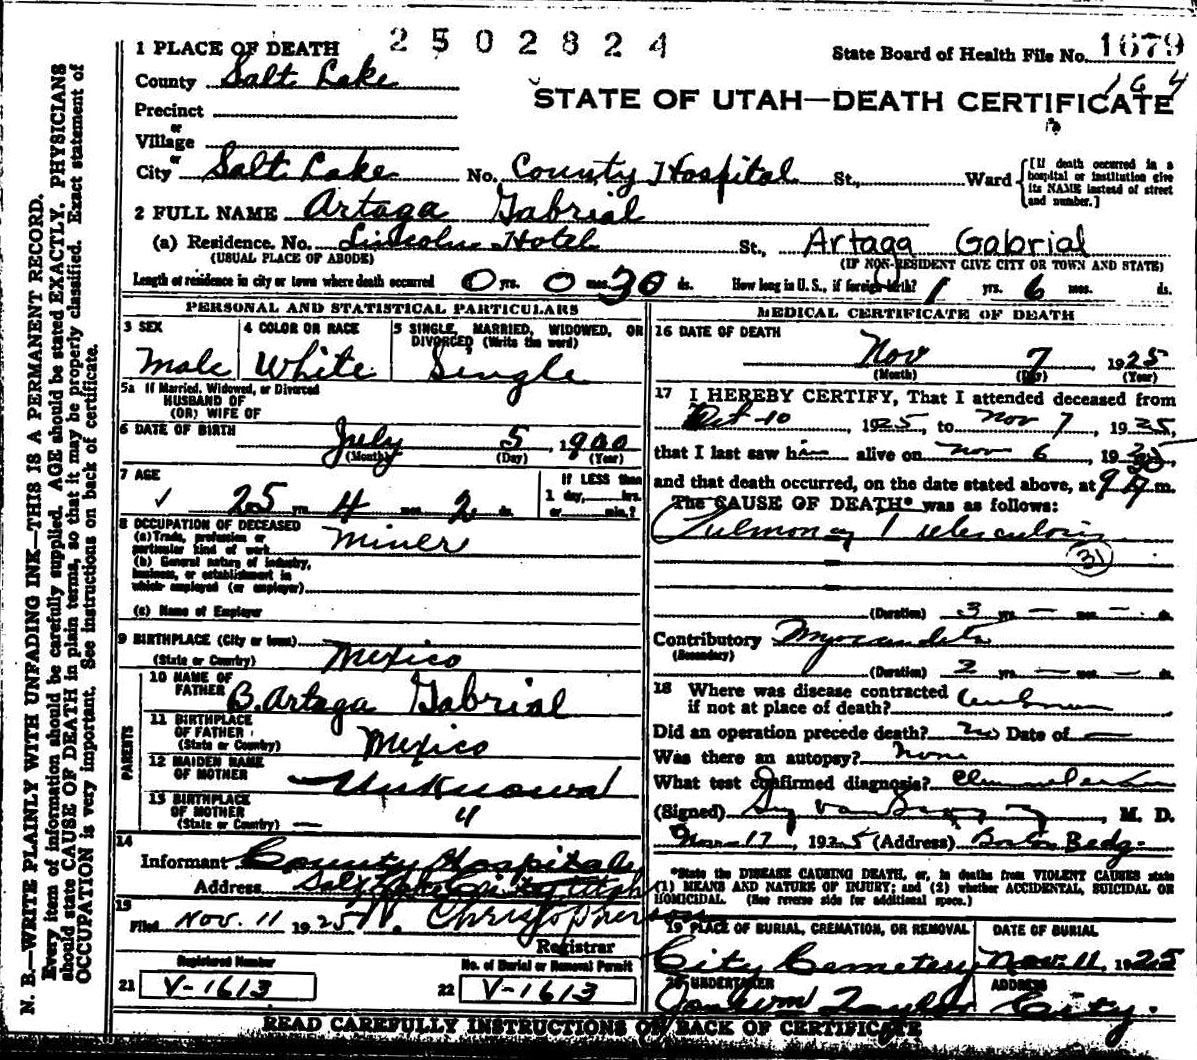 2502824
State Board of Health File No. 1679
164
STATE OF UTAH—DEATH CERTIFICATE
1 PLACE OF DEATH
County Salt Lake
Precinct
or
Village
or
City Salt Lake No. County Hospital St., Ward
[If death occurred in a hospital or institution give its NAME instead of street and number.]
2 FULL NAME Artaga Gabrial
(a) Residence. No. Lincoln Hotel St., Artaga Gabrial
(USUAL PLACE OF ABODE) (IF NON-RESIDENT GIVE CITY OR TOWN AND STATE)
Length of residence in city or town where death occurred 0 yrs. 0 mos. 30 ds. How long in U. S., if foreign birth? 1 yrs. 6 mos. ds.
PERSONAL AND STATISTICAL PARTICULARS
3 SEX
Male
4 COLOR OR RACE
White
5 SINGLE, MARRIED, WIDOWED, OR
DIVORCED (Write the word)
Single
5a If Married, Widowed, or Divorced
HUSBAND OF
(OR) WIFE OF
6 DATE OF BIRTH
July 5, 1900
(Month) (Day) (Year)
7 AGE
25 yrs. 4 mos. 2 ds.
If LESS than
1 day, hrs.
or min.?
8 OCCUPATION OF DECEASED
(a) Trade, profession or
particular kind of work Miner
(b) General nature of industry,
business, or establishment in
which employed (or employer)
(c) Name of Employer
9 BIRTHPLACE (City or town)
(State or Country) Mexico
PARENTS
10 NAME OF
FATHER B. Artaga Gabrial
11 BIRTHPLACE
OF FATHER
(State or Country) Mexico
12 MAIDEN NAME
OF MOTHER Unknown
13 BIRTHPLACE
OF MOTHER
(State or Country) — "
14
Informant County Hospital
Address Salt Lake City Utah
15
Filed Nov. 11 1925 Christopherson
Registrar
Registered Number
21 V-1613
No. of Burial or Removal Permit
22 V-1613
MEDICAL CERTIFICATE OF DEATH
16 DATE OF DEATH
Nov 7, 1925
(Month) (Day) (Year)
17 I HEREBY CERTIFY, That I attended deceased from
Oct 10, 1925, to Nov 7, 1925,
that I last saw him alive on Nov 6, 19
and that death occurred, on the date stated above, at 9 m.
The CAUSE OF DEATH* was as follows:
Pulmonary Tuberculosis
31
(Duration) 3 yrs. — mos. — ds.
Contributory Myocarditis
(Secondary)
(Duration) 2 yrs. — mos. — ds.
18 Where was disease contracted
if not at place of death?
Did an operation precede death? No Date of —
Was there an autopsy? None
What test confirmed diagnosis?
(Signed) M. D.
Nov 17, 1925 (Address) Boston Bldg.
*State the DISEASE CAUSING DEATH, or, in deaths from VIOLENT CAUSES state
(1) MEANS AND NATURE OF INJURY; and (2) whether ACCIDENTAL, SUICIDAL OR
HOMICIDAL. (See reverse side for additional space.)
19 PLACE OF BURIAL, CREMATION, OR REMOVAL
City Cemetery
DATE OF BURIAL
Nov. 11, 1925
20 UNDERTAKER
Taylor
ADDRESS
City.
READ CAREFULLY INSTRUCTIONS ON BACK OF CERTIFICATE
N. B.—WRITE PLAINLY WITH UNFADING INK—THIS IS A PERMANENT RECORD.
Every item of information should be carefully supplied. AGE should be stated EXACTLY. PHYSICIANS
should state CAUSE OF DEATH in plain terms, so that it may be properly classified. Exact statement of
OCCUPATION is very important. See instructions on back of certificate.